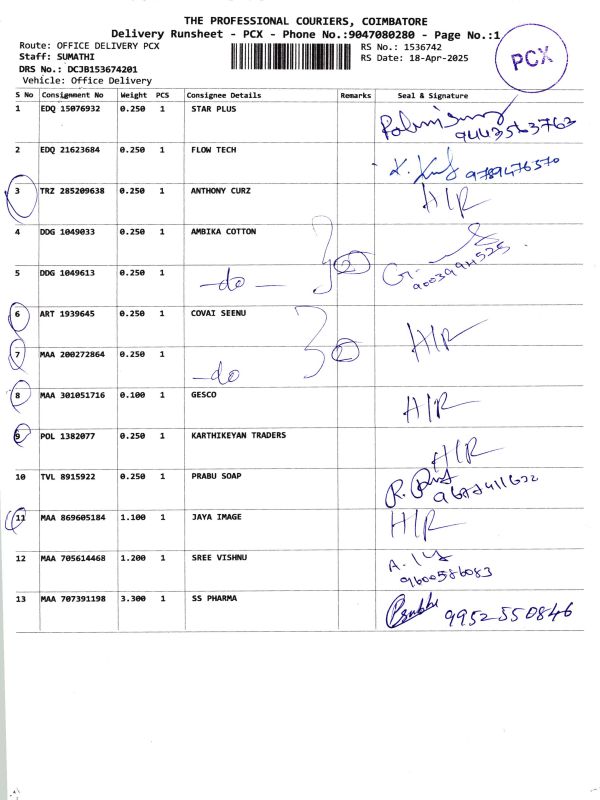 THE PROFESSIONAL COURIERS, COIMBATORE
Delivery Runsheet - PCX - Phone No.:9047080280 - Page No.:1
Route: OFFICE DELIVERY PCX
RS No.: 1536742
Staff: SUMATHI
RS Date: 18-Apr-2025
DRS No.: DCJB153674201
Vehicle: Office Delivery
PCX
S No Consignment No Weight PCS Consignee Details Remarks Seal & Signature
1 EDQ 15076932 0.250 1 STAR PLUS
9443563763
2 EDQ 21623684 0.250 1 FLOW TECH
9789476570
3 TRZ 285209638 0.250 1 ANTHONY CURZ H/R
4 DDG 1049033 0.250 1 AMBIKA COTTON
5 DDG 1049613 0.250 1 -do- 2
6 ART 1939645 0.250 1 COVAI SEENU H/R
7 MAA 200272864 0.250 1 -do 2
8 MAA 301051716 0.100 1 GESCO H/R
9 POL 1382077 0.250 1 KARTHIKEYAN TRADERS H/R
10 TVL 8915922 0.250 1 PRABU SOAP
11 MAA 869605184 1.100 1 JAYA IMAGE H/R
12 MAA 705614468 1.200 1 SREE VISHNU
9600586083
13 MAA 707391198 3.300 1 SS PHARMA 9952550846